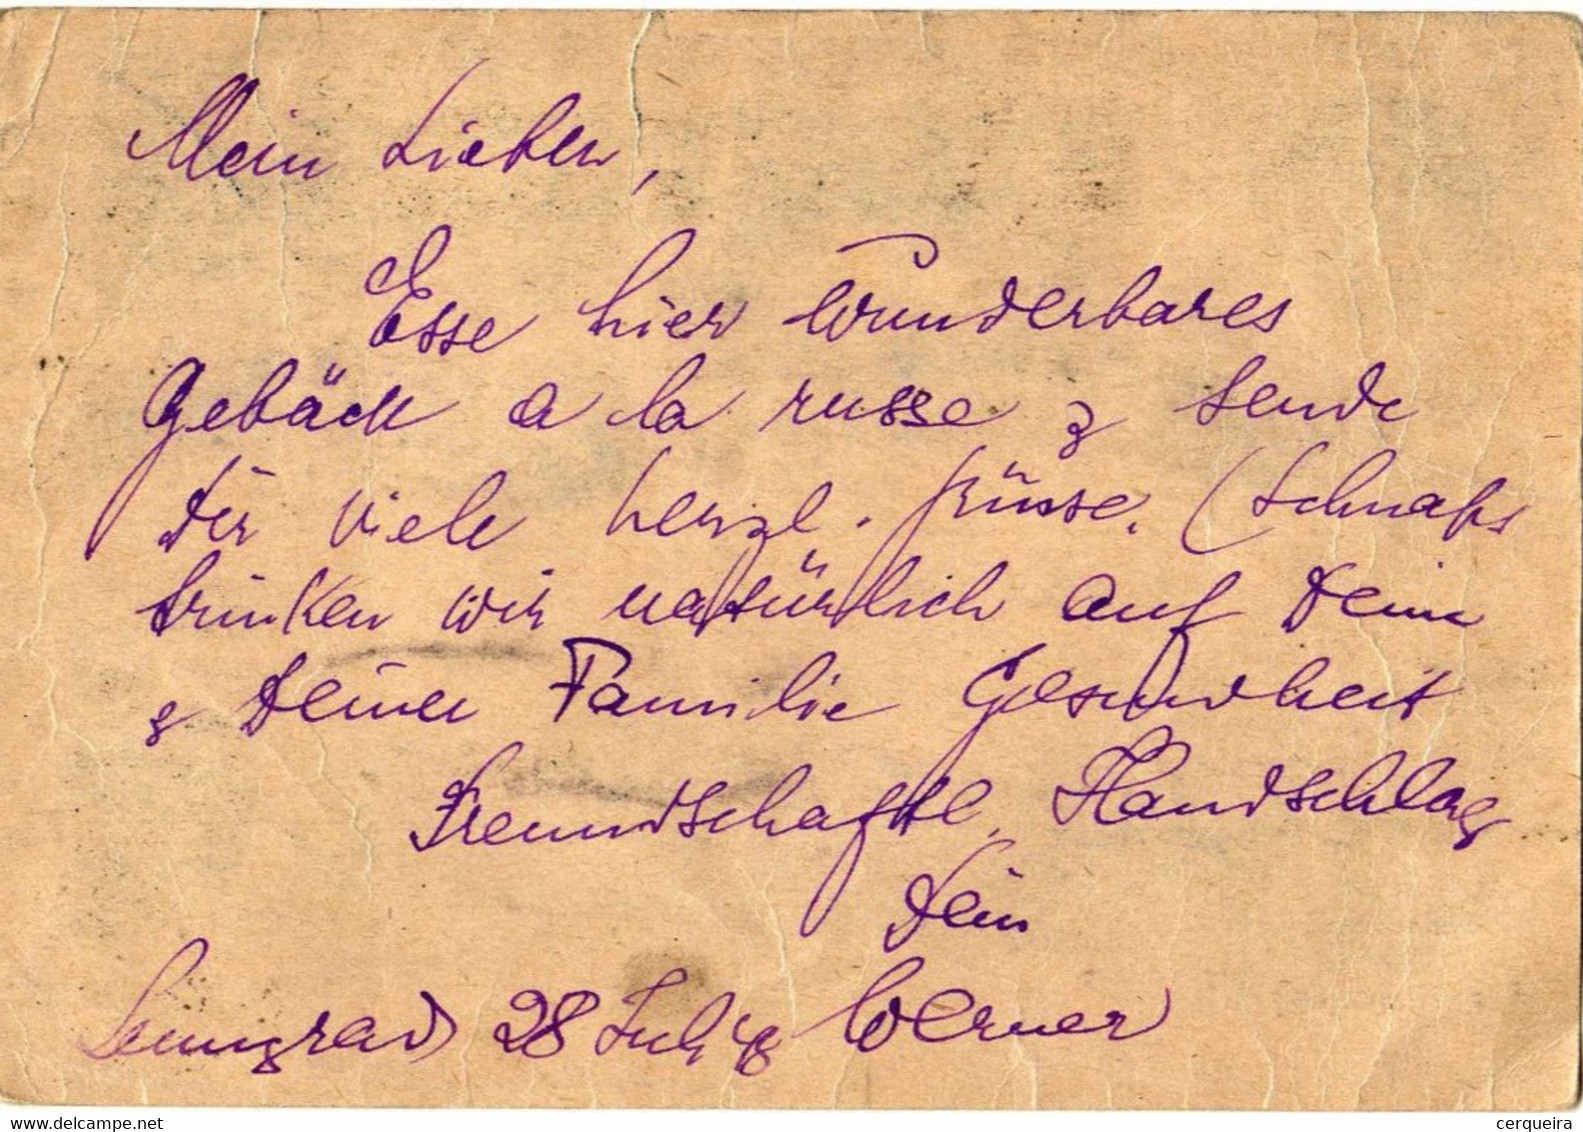 Mein Lieber,
Esse hier wunderbares
Gebäck a la russe & sende
Dir viele herzl. Grüsse. (Schnaps
trinken wir natürlich auf Deine
& Deiner Familie Gesundheit
Freundschaftl. Handschlag
Dein
Leningrad 28 Juli Werner
www.delcampe.net
cerqueira